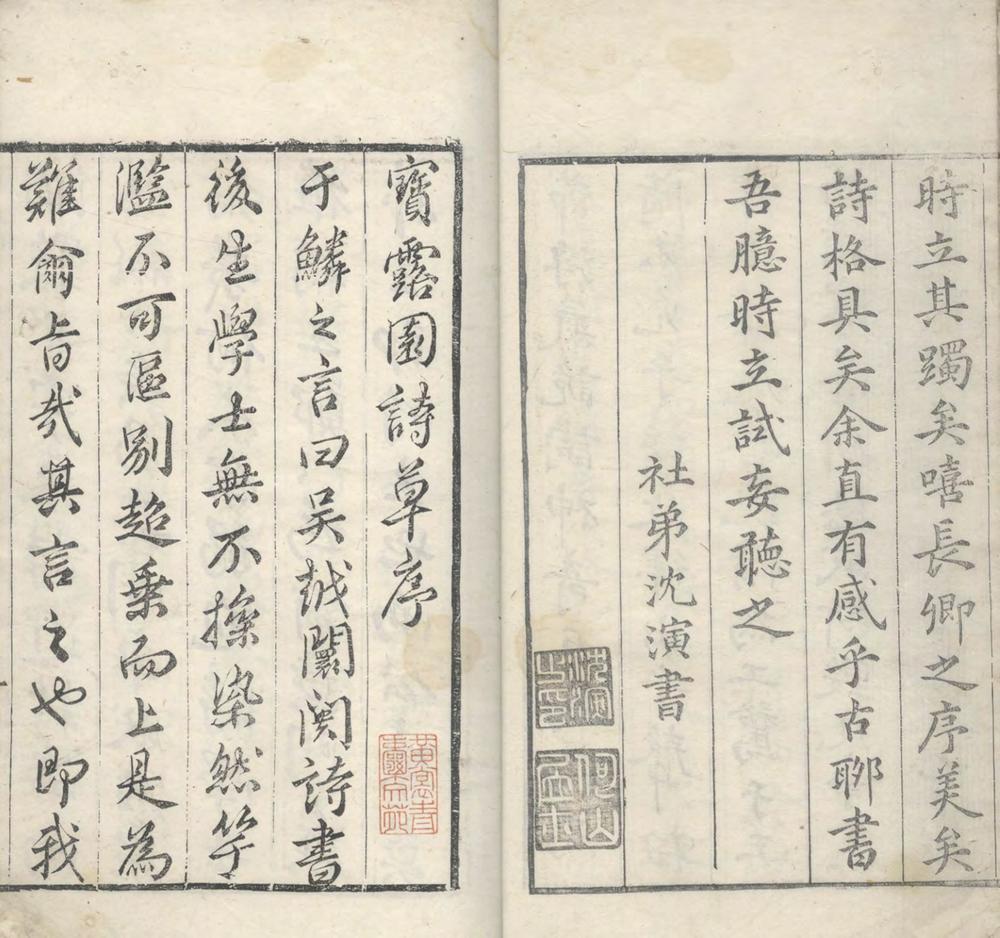 時立其躅矣嘻長卿之序美矣
詩格具矣余直有感乎古聊書
吾臆時立試妄聽之
社弟沈演書
沈演之印
寶露園詩草序
于鱗之言曰吳越闤闠詩書
後生學士無不操染然竽
濫不可區別超乘而上是為
難爾旨哉其言之也即我